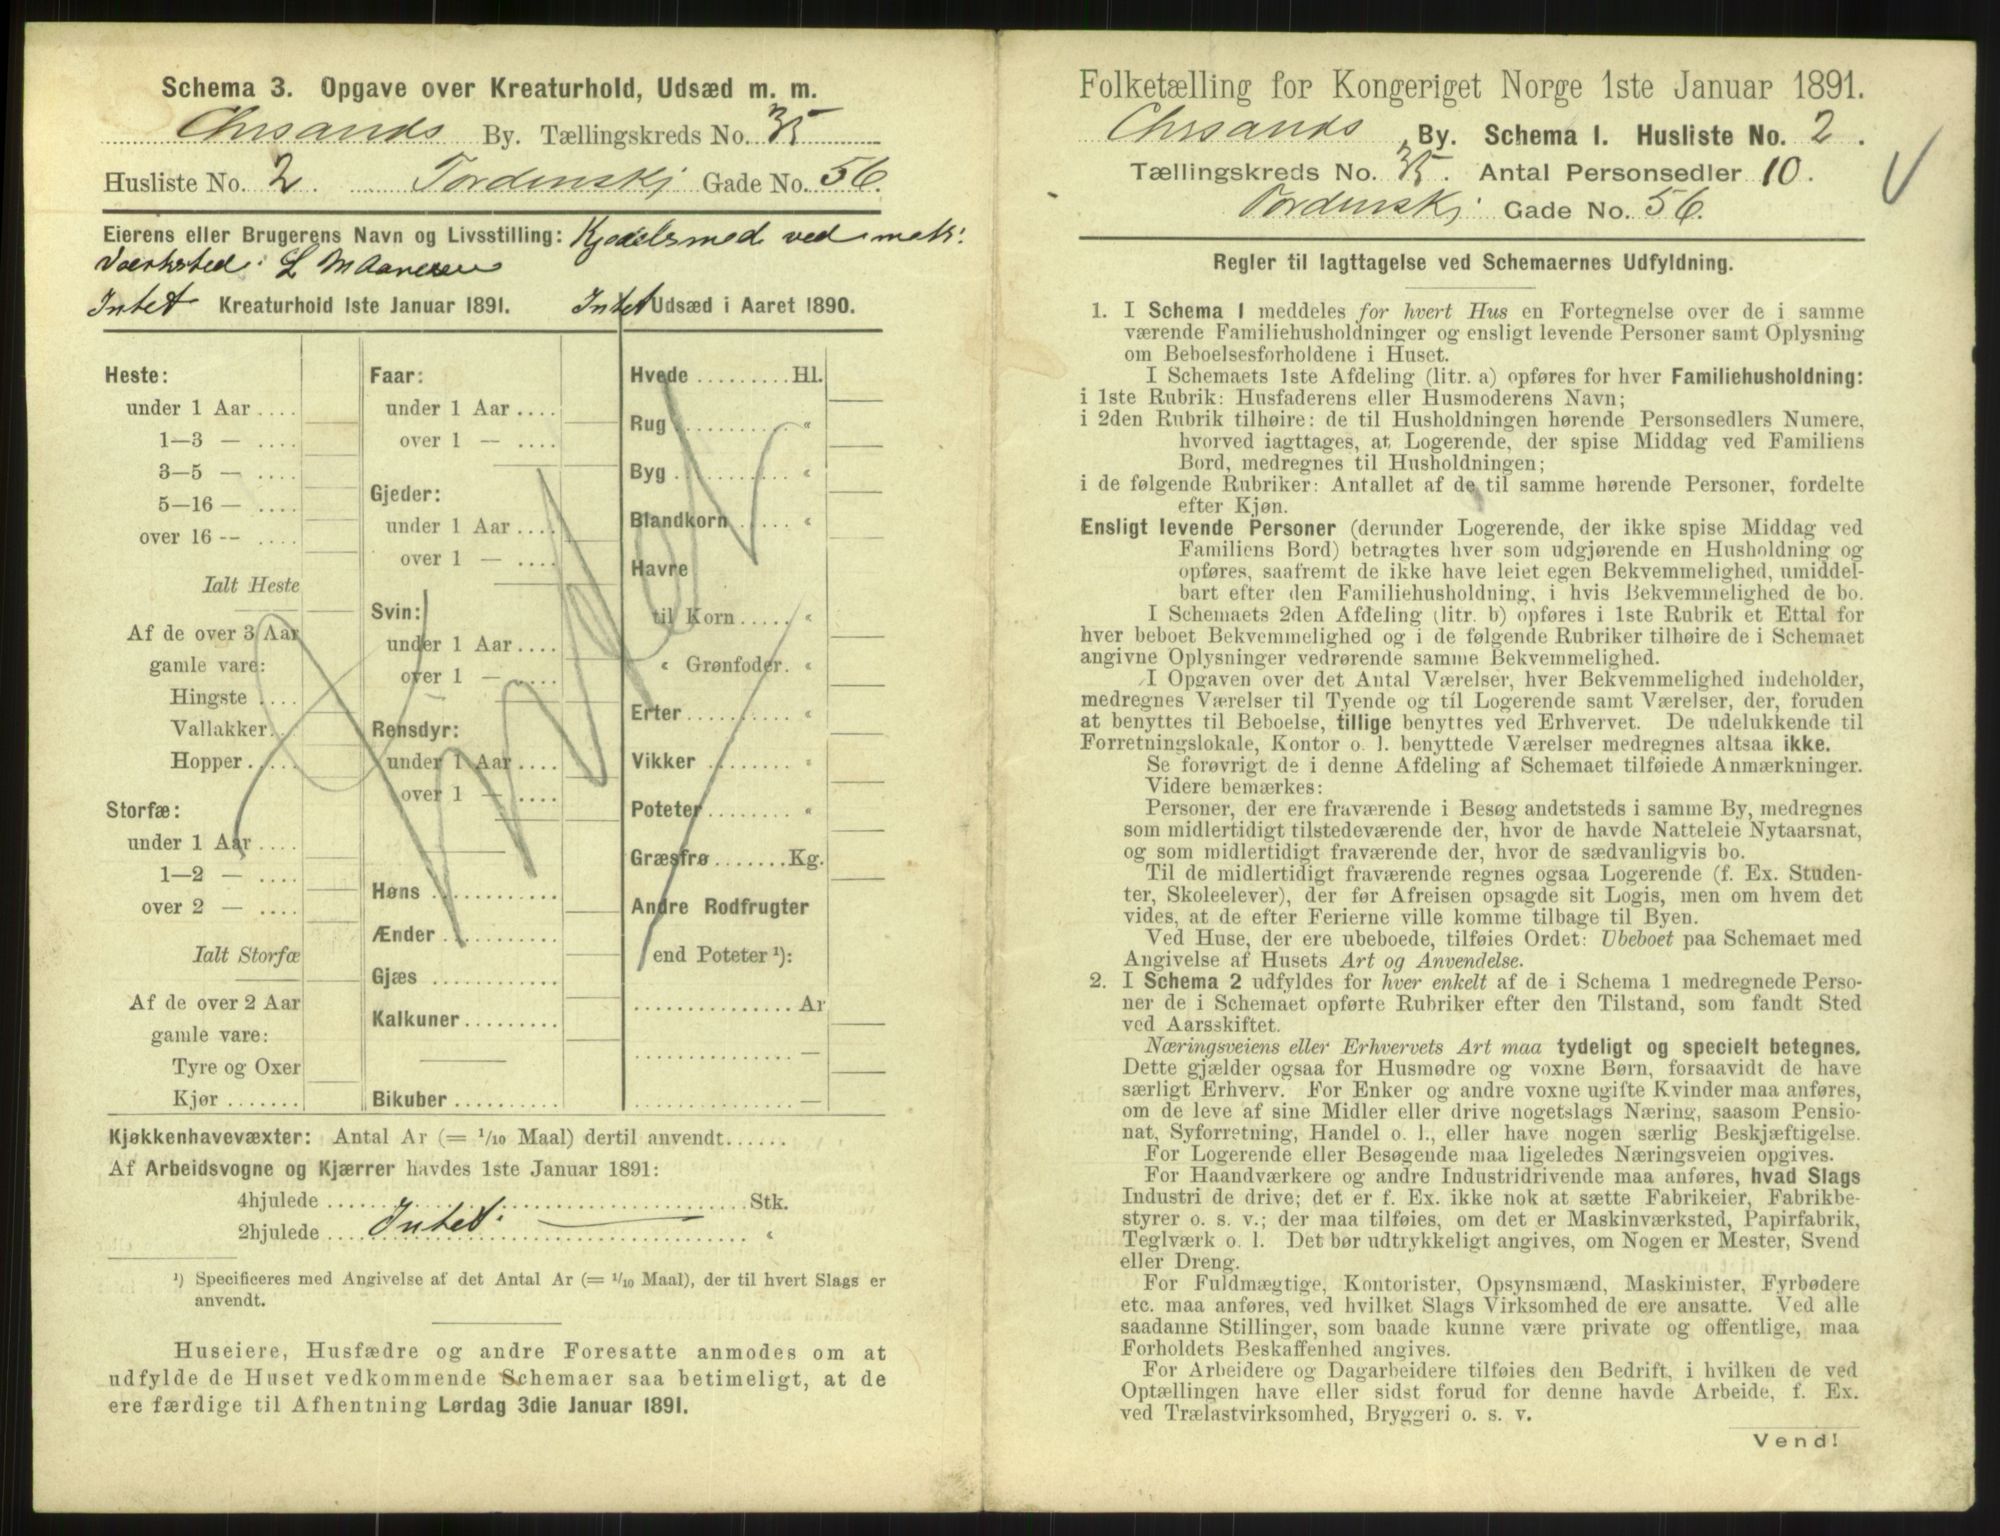 Schema 3. Opgave over Kreaturhold, Udsæd m. m.
Chrsands By. Tællingskreds No. 35
Husliste No. 2. Tordenskj Gade No. 56.
Eierens eller Brugerens Navn og Livsstilling: Kjedelsmed ved mek:
Værksted: L M Aanesen
Intet Kreaturhold 1ste Januar 1891. Intet Udsæd i Aaret 1890.
Heste:
under 1 Aar ....
1—3 — ....
3—5 — ....
5—16 — ....
over 16 -- ....
Ialt Heste
Af de over 3 Aar
gamle vare:
Hingste ....
Vallakker..
Hopper .....
Storfæ:
under 1 Aar ....
1—2 — ....
over 2 — ....
Ialt Storfæ
Af de over 2 Aar
gamle vare:
Tyre og Oxer
Kjør .......
Faar:
under 1 Aar ....
over 1 — ....
Gjeder:
under 1 Aar ....
over 1 — ....
Svin:
under 1 Aar ....
over 1 — ....
Rensdyr:
under 1 Aar ....
over 1 — ....
Høns ............
Ænder ...........
Gjæs ............
Kalkuner.........
Bikuber ..........
Hvede .........Hl.
Rug ............ «
Byg ............ «
Blandkorn ..... «
Havre
til Korn ..... «
« Grønfoder. «
Erter........... «
Vikker ......... «
Poteter ........ «
Græsfrø .......Kg.
Andre Rodfrugter
end Poteter ¹):
...............Ar
............... —
............... —
Kjøkkenhavevæxter: Antal Ar (= 1/10 Maal) dertil anvendt......
Af Arbeidsvogne og Kjærrer havdes 1ste Januar 1891:
4hjulede ........................................Stk.
2hjulede .... Intet. ........................ «
¹) Specificeres med Angivelse af det Antal Ar (= 1/10 Maal), der til hvert Slags er
anvendt.
Huseiere, Husfædre og andre Foresatte anmodes om at
udfylde de Huset vedkommende Schemaer saa betimeligt, at de
ere færdige til Afhentning Lørdag 3die Januar 1891.
Folketælling for Kongeriget Norge 1ste Januar 1891.
Chrsands By. Schema I. Husliste No. 2.
Tællingskreds No. 35. Antal Personsedler 10.
Tordenskj Gade No. 56.
Regler til Iagttagelse ved Schemaernes Udfyldning.
1. I Schema I meddeles for hvert Hus en Fortegnelse over de i samme
værende Familiehusholdninger og ensligt levende Personer samt Oplysning
om Beboelsesforholdene i Huset.
I Schemaets 1ste Afdeling (litr. a) opføres for hver Familiehusholdning:
i 1ste Rubrik: Husfaderens eller Husmoderens Navn;
i 2den Rubrik tilhøire: de til Husholdningen hørende Personsedlers Numere,
hvorved iagttages, at Logerende, der spise Middag ved Familiens
Bord, medregnes til Husholdningen;
i de følgende Rubriker: Antallet af de til samme hørende Personer, fordelte
efter Kjøn.
Ensligt levende Personer (derunder Logerende, der ikke spise Middag ved
Familiens Bord) betragtes hver som udgjørende en Husholdning og
opføres, saafremt de ikke have leiet egen Bekvemmelighed, umiddel-
bart efter den Familiehusholdning, i hvis Bekvemmelighed de bo.
I Schemaets 2den Afdeling (litr. b) opføres i 1ste Rubrik et Ettal for
hver beboet Bekvemmelighed og i de følgende Rubriker tilhøire de i Schemaet
angivne Oplysninger vedrørende samme Bekvemmelighed.
I Opgaven over det Antal Værelser, hver Bekvemmelighed indeholder,
medregnes Værelser til Tyende og til Logerende samt Værelser, der, foruden
at benyttes til Beboelse, tillige benyttes ved Erhvervet. De udelukkende til
Forretningslokale, Kontor o. l. benyttede Værelser medregnes altsaa ikke.
Se forøvrigt de i denne Afdeling af Schemaet tilføiede Anmærkninger.
Videre bemærkes:
Personer, der ere fraværende i Besøg andetsteds i samme By, medregnes
som midlertidigt tilstedeværende der, hvor de havde Natteleie Nytaarsnat,
og som midlertidigt fraværende der, hvor de sædvanligvis bo.
Til de midlertidigt fraværende regnes ogsaa Logerende (f. Ex. Studen-
ter, Skoleelever), der før Afreisen opsagde sit Logis, men om hvem det
vides, at de efter Ferierne ville komme tilbage til Byen.
Ved Huse, der ere ubeboede, tilføies Ordet: Ubeboet paa Schemaet med
Angivelse af Husets Art og Anvendelse.
2. I Schema 2 udfyldes for hver enkelt af de i Schema 1 medregnede Perso-
ner de i Schemaet opførte Rubriker efter den Tilstand, som fandt Sted
ved Aarsskiftet.
Næringsveiens eller Erhvervets Art maa tydeligt og specielt betegnes.
Dette gjælder ogsaa for Husmødre og voxne Børn, forsaavidt de have
særligt Erhverv. For Enker og andre voxne ugifte Kvinder maa anføres,
om de leve af sine Midler eller drive nogetslags Næring, saasom Pensio-
nat, Syforretning, Handel o. l., eller have nogen særlig Beskjæftigelse.
For Logerende eller Besøgende maa ligeledes Næringsveien opgives.
For Haandværkere og andre Industridrivende maa anføres, hvad Slags
Industri de drive; det er f. Ex. ikke nok at sætte Fabrikeier, Fabrikbe-
styrer o. s. v.; der maa tilføies, om det er Maskinværksted, Papirfabrik,
Teglværk o. l. Det bør udtrykkeligt angives, om Nogen er Mester, Svend
eller Dreng.
For Fuldmægtige, Kontorister, Opsynsmænd, Maskinister, Fyrbødere
etc. maa anføres, ved hvilket Slags Virksomhed de ere ansatte. Ved alle
saadanne Stillinger, som baade kunne være private og offentlige, maa
Forholdets Beskaffenhed angives.
For Arbeidere og Dagarbeidere tilføies den Bedrift, i hvilken de ved
Optællingen have eller sidst forud for denne havde Arbeide, f. Ex.
ved Trælastvirksomhed, Bryggeri o. s. v.
Vend!